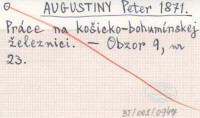 AUGUSTINY Peter 1871.
Práce na košicko-bohumínskej
železnici. — Obzor 9, nr
23.